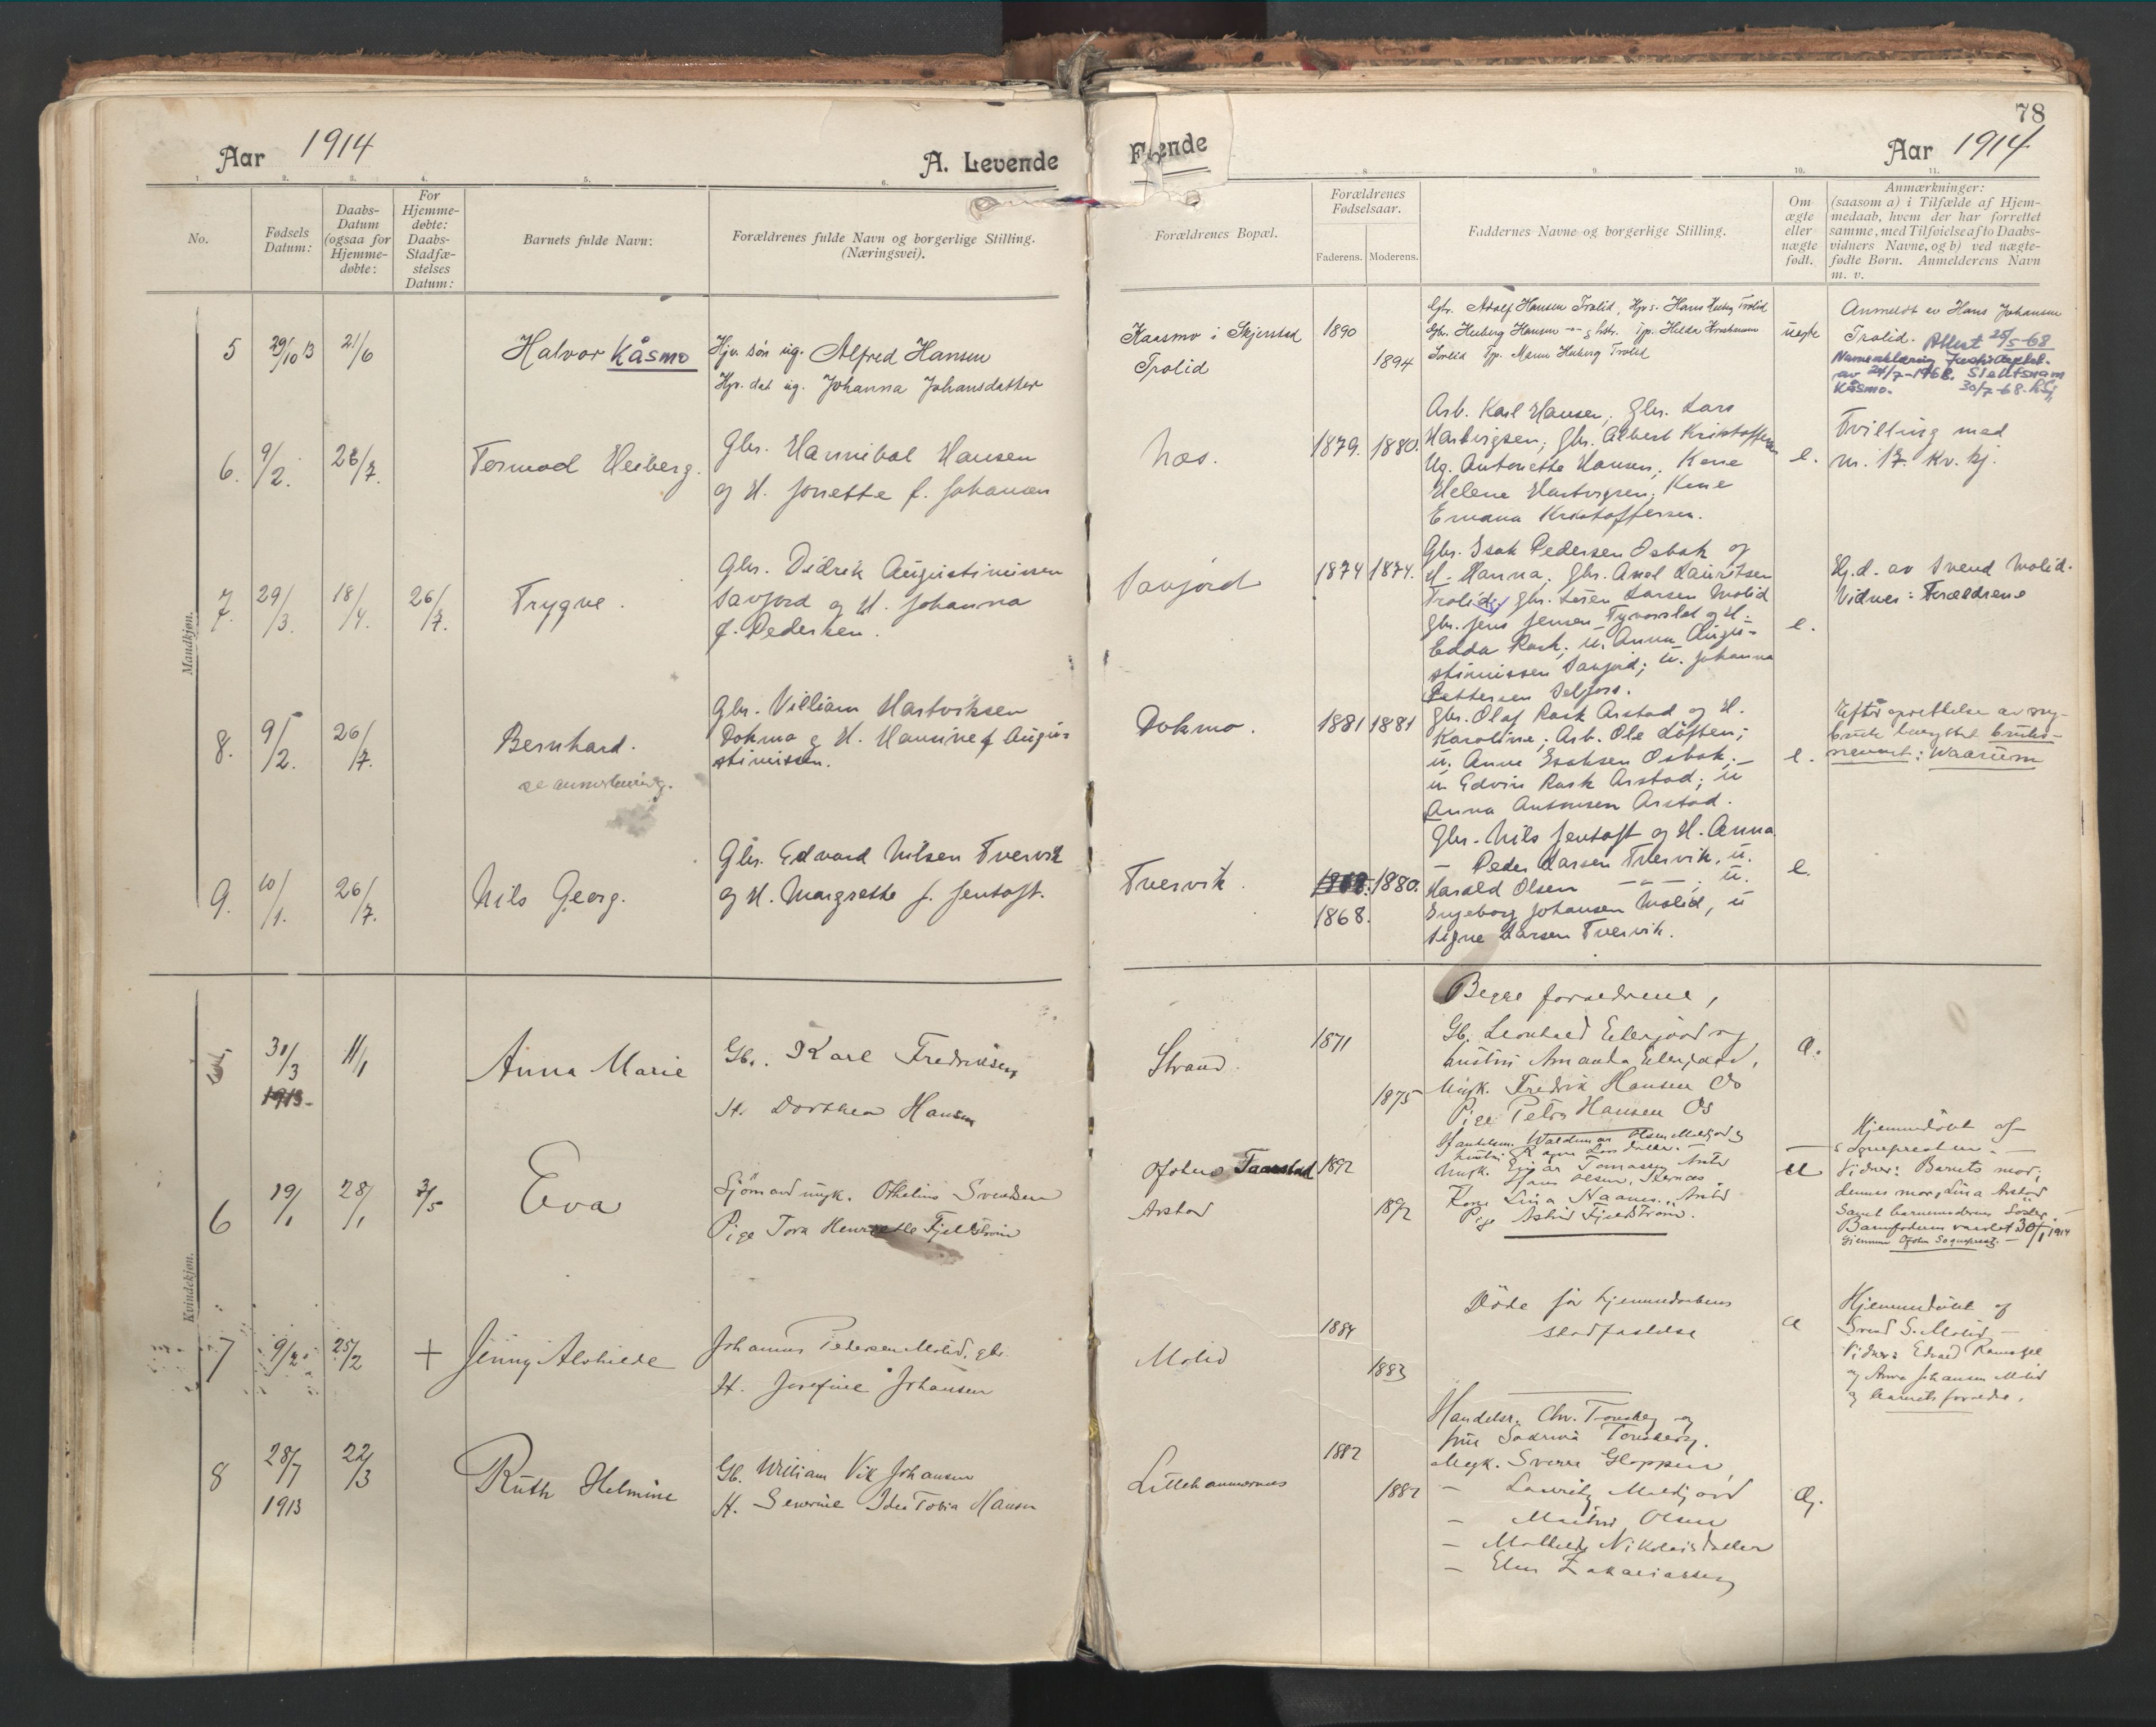 Aar 1914
A. Levende
1. 2. 3. 4. 5. 6.
No.
Fødsels Datum:
Daabs-Datum (ogsaa for Hjemme-døbte:
For Hjemme-døbte: Daabs-Stadfæ-stelses Datum:
Barnets fulde Navn:
Forældrenes fulde Navn og borgerlige Stilling. (Næringsvei).
Mandkjøn.
5 29/10 13 21/6 Halvor Kåsmo
Hjv. søn ug. Alfred Hansen
Hjv. dat ug. Johanna Johansdatter
6. 9/2. 26/7. Tormod Heiberg.
Gbr. Hannibal Hansen
og H. Jonette f. Johansen
7. 29/3. 18/4. 26/7. Trygve.
Gbr. Didrik Augustinussen
Savjord og H. Johanna
f. Pedersen.
8. 9/2. 26/7. Bernhard.
se anmerkning.
Gbr. Villiam Hartviksen
Dokmo og H. Hanine f. Augu-
stinissen.
9. 10/1. 26/7. Nils Georg.
Gbr. Edvard Nilsen Tvervik
og H. Margrethe f. Jentoft.
Kvindekjøn.
30/3 1913 11/1 Anna Marie
Gb. Karl Fredriksen
H. Dorthea Hansen
6 19/1 28/1 3/5 Eva
Sjömand ungk. Othelius Svendsen
Pige Tora Henriette Fjeldström
7 9/2 25/2 + Jenny Alvhilde
Johannes Pedersen Molid, gbr.
H. Josefine Johansen
8 28/7 1913 22/3 Ruth Helmine
Gb. William Vik Johansen
H. Severine Ida Tobia Hansen
78
Fødende
Aar 1914
8. 9. 10. 11.
Forældrenes Bopæl.
Forældrenes Fødselsaar.
Faderens. Moderens.
Faddernes Navne og borgerlige Stilling.
Om ægte eller uægte født.
Anmærkninger:
(saasom a) i Tilfælde af Hjem-
medaab, hvem der har forrettet
samme, med Tilføielse af to Daabs-
vidners Navne, og b) ved uægte-
fødte Børn. Anmelderens Navn
m. v.
Kaasmo i Skjerstad 1890
Trolid 1894
Gbr. Adolf Hansen Trolid, Hjv s. Hans Heiberg Trolid
Gbr. Heiberg Hansen
Trolid
uegte
Anmeldt av Hans Johansen
Trolid. Attest 25/5-68
av 24/7-1968. Slektsnavn
Kåsmo. 30/7-68.
Næs. 1879. 1880.
Arb. Karl Hansen, Gbr. Lars
Hartvigsen; Gbr. Albert Kristoffersen
Ug. Antonette Hansen; Kone
Helene Hartvigsen; Kone
Emana Kristoffersen.
e.
Tvilling med
nr. 17. Kv. kj.
Savjord 1874 1874.
Gbr. Isak Pedersen Osbak og
H. Hanna; Gbr. Axel Lauritsen
Trolid; Gbr. Sören Larsen Molid
Gbr. Jens Jensen Tyvosslet og H.
Edda Rask; U. Anna Augu-
stinissen Savjord; U. Johanna
Pettersen Selfors.
e.
Hj.d. av Svend Molid.
Vidner: Forældrene
Dokmo. 1881 1881
Gbr. Olaf Rask Arstad og H.
Karoline; Arb. Ole Löften;
U. Anne Isaksen Osbak;
U. Edvin Rask Arstad; U
Anna Antonsen Arstad.
e.
Efter oprettelse av
navnet: Waarum
Tvervik. 1868. 1880.
1868.
Gbr. Nils Jentoft og H. Anna
— Peder Larsen Tvervik, U.
Harald Olsen — „ — ; U.
Ingeborg Johansen Molid, U
Signe Larsen Tvervik.
e.
Strand 1871
1875
Begge forældrene,
Gb. Leonhard Eilerfjord og
hustru Amanda Eilerfjord,
Ungk. Fredrik Hansen Os
Pige Petra Hansen Os
e.
Ofoten Taarstad 1892
Arstad 1892
Handelsm. Waldemar Olsen Meldfjord og
Ungk. Einar Tomassen Arstad
Kone Lina Hansen. Arstad
Pige Astrid Fjeldström.
U
Hjemmedöbt af
sogneprest
Vidner: Barnets mor;
dennes mor, Lina Arstad
Samt barnemoderens Söster
Barnefaderen varslet 30/1 1914
gjennem Ofoten Sogneprest.
Molid 1884
1883
Döde før hjemmedaabens
stadfestelse
e
Hjemmedöbt af
Svend S. Molid
Vidner: Edvard
og Anna Johansen Molid
og barnets forældre.
Lillehammernes 1882
1882
Handelsr. Chr. Tonsberg og
fru Tonsberg.
Ungk. Sverre Hopper
— Lauritz Meldfjord
— Olsen
— Mathilde Nikolaisdatter
— Zakariassen
Eg.